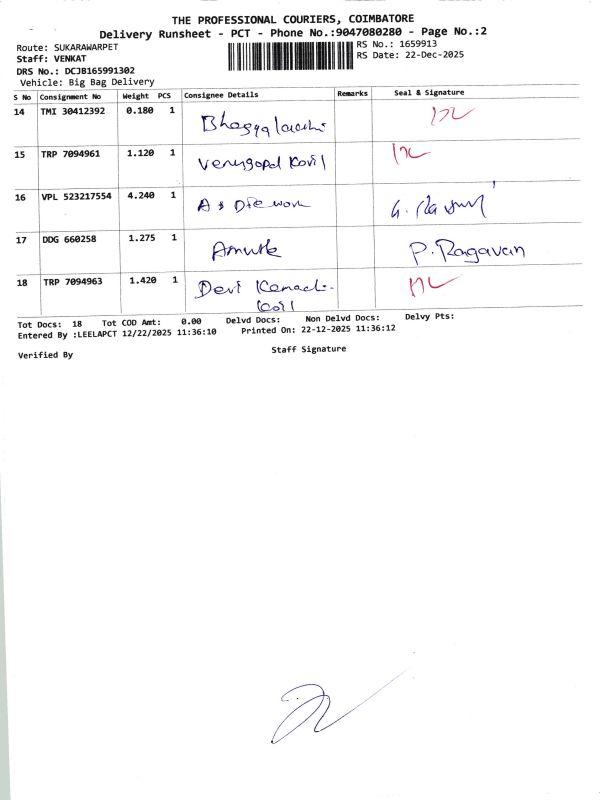 THE PROFESSIONAL COURIERS, COIMBATORE
Delivery Runsheet - PCT - Phone No.:9047080280 - Page No.:2
Route: SUKARAWARPET
RS No.: 1659913
Staff: VENKAT
RS Date: 22-Dec-2025
DRS No.: DCJB165991302
Vehicle: Big Bag Delivery
S No Consignment No Weight PCS Consignee Details Remarks Seal & Signature
14 TMI 30412392 0.180 1
15 TRP 7094961 1.120 1 Venugopal Kovil
16 VPL 523217554 4.240 1 A s Die work
17 DDG 660258 1.275 1 P. Ragavan
18 TRP 7094963 1.420 1 Devi
Kovil
Tot Docs: 18 Tot COD Amt: 0.00 Delvd Docs: Non Delvd Docs: Delvy Pts:
Entered By :LEELAPCT 12/22/2025 11:36:10 Printed On: 22-12-2025 11:36:12
Verified By Staff Signature